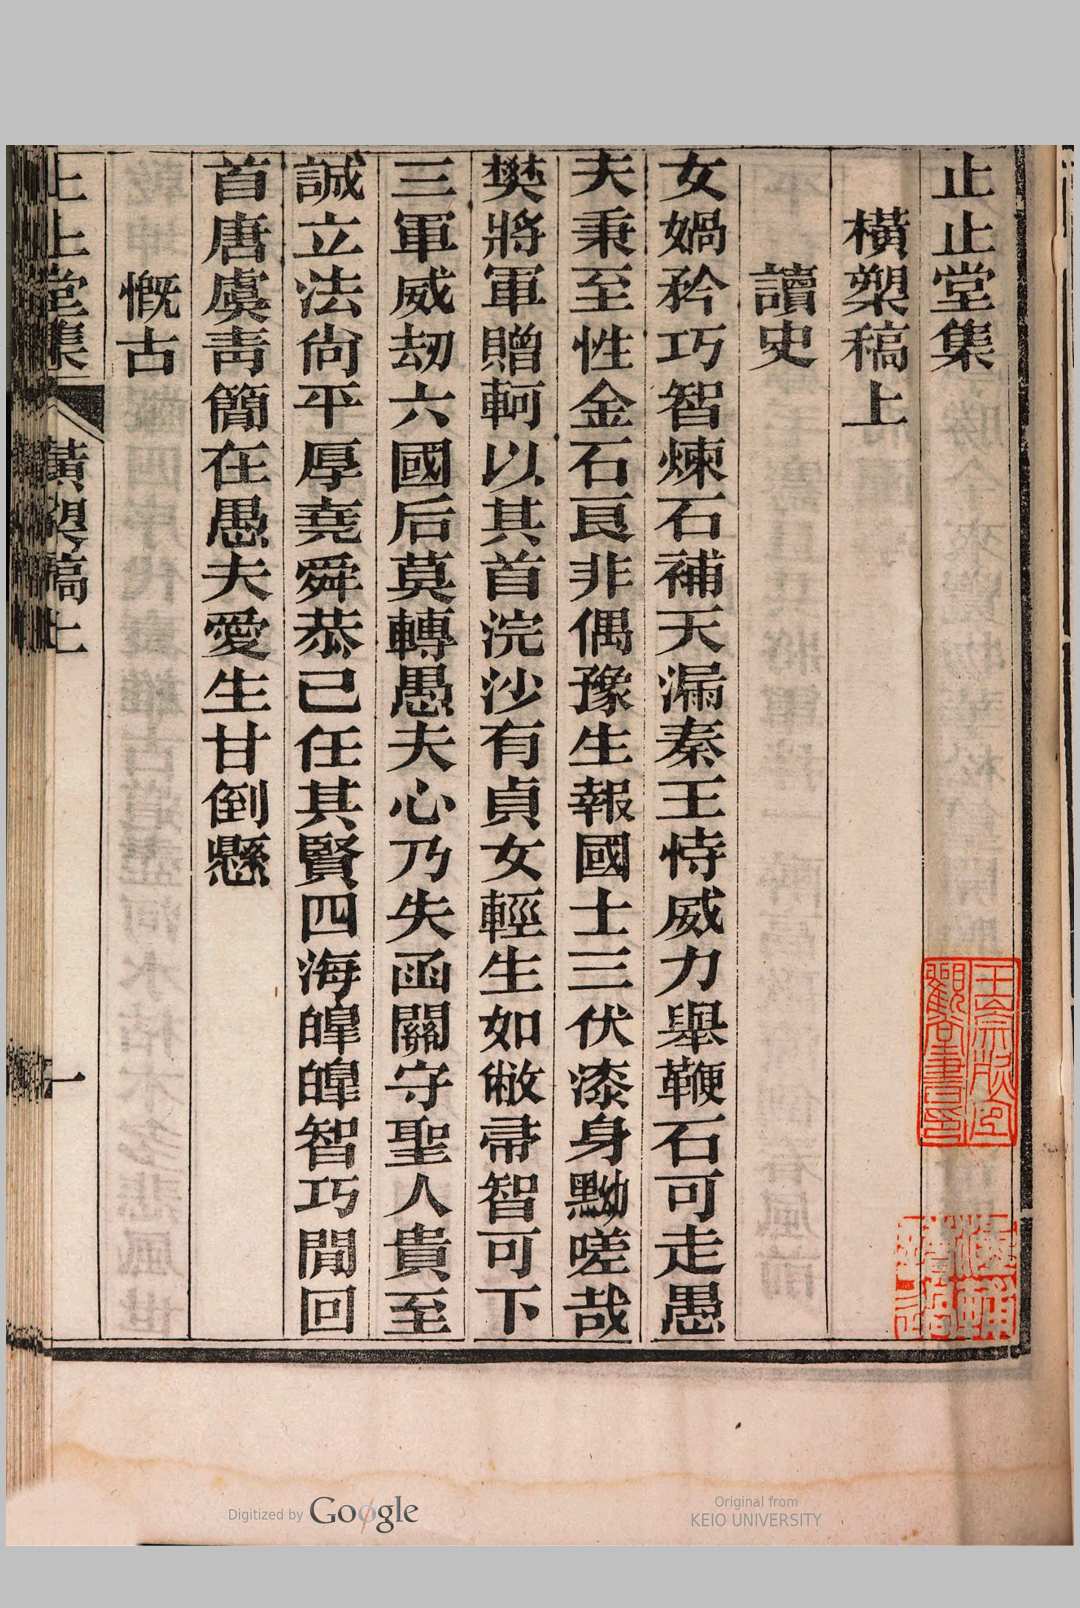 止止堂集
橫槊稿上
讀史
女媧矜巧智煉石補天漏秦王恃威力舉鞭石可走愚
夫秉至性金石良非偶豫生報國士三伏漆身黝嗟哉
樊將軍贈軻以其首浣沙有貞女輕生如敝帚智可下
三軍威刼六國后莫轉愚夫心乃失函關守聖人貴至
誠立法尙平厚堯舜恭己任其賢四海皥皥智巧閒回
首唐虞靑簡在愚夫愛生甘倒懸
慨古
止止堂集
橫槊稿上
一
Digitized by Google
Original from
KEIO UNIVERSITY